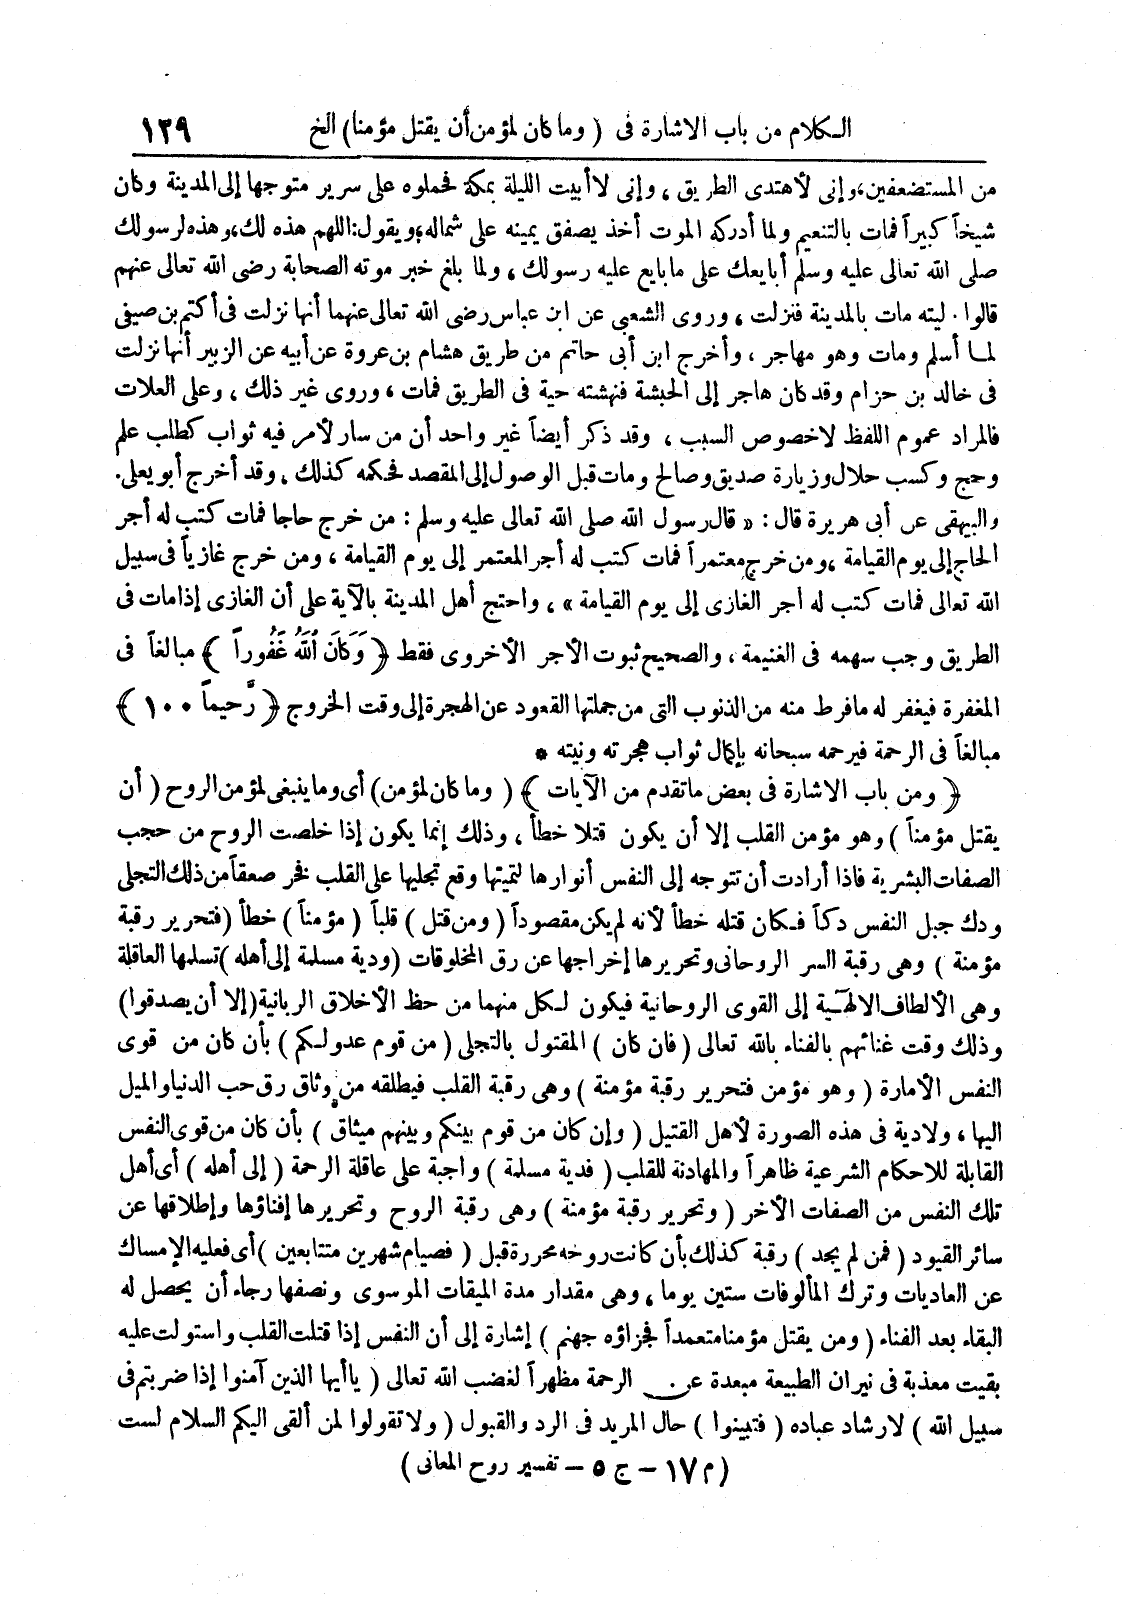 الكلام من باب الاشارة فى ( وما كان لمؤمن أن يقتل مؤمنا ) الخ ١٢٩
من المستضعفين، وإنى لأهتدى الطريق، وإنى لاأبيت الليلة بمكة فحملوه على سرير متوجها إلى المدينة وكان
شيخاً كبيراً فمات بالتنعيم ولما أدركه الموت أخذ يصفق يمينه على شماله، ويقول: اللهم هذه لك، وهذه لرسولك
صلى الله تعالى عليه وسلم أبايعك على مابايع عليه رسولك، ولما بلغ خبر موته الصحابة رضى الله تعالى عنهم
قالوا. ليته مات بالمدينة فنزلت، وروى الشعبى عن ابن عباس رضى الله تعالى عنهما أنها نزلت فى أكتم بن صيفى
لما أسلم ومات وهو مهاجر، وأخرج ابن أبى حاتم من طريق هشام بن عروة عن أبيه عن الزبير أنها نزلت
فى خالد بن حزام وقد كان هاجر إلى الحبشة فنهشته حية فى الطريق فمات، وروى غير ذلك، وعلى العلات
فالمراد عموم اللفظ لاخصوص السبب، وقد ذكر أيضاً غير واحد أن من سار لأمر فيه ثواب كطلب علم
وحج وكسب حلال وزيارة صديق وصالح ومات قبل الوصول إلى المقصد فحكمه كذلك، وقد أخرج أبو يعلى.
والبيهقى عن أبى هريرة قال: « قال رسول الله صلى الله تعالى عليه وسلم: من خرج حاجا فمات كتب له أجر
الحاج إلى يوم القيامة، ومن خرج معتمراً فمات كتب له أجر المعتمر إلى يوم القيامة، ومن خرج غازياً فى سبيل
الله تعالى فمات كتب له أجر الغازى إلى يوم القيامة »، واحتج أهل المدينة بالآية على أن الغازى إذا مات فى
الطريق وجب سهمه فى الغنيمة، والصحيح ثبوت الأجر الأخروى فقط ﴿ وَكَانَ ٱللَّهُ غَفُوراً ﴾ مبالغاً فى
المغفرة فيغفر له مافرط منه من الذنوب التى من جملتها القعود عن الهجرة إلى وقت الخروج ﴿ رَّحيماً ١٠٠ ﴾
مبالغاً فى الرحمة فيرحمه سبحانه بإكمال ثواب هجرته ونيته *
﴿ ومن باب الاشارة فى بعض ماتقدم من الآيات ﴾ ( وما كان لمؤمن ) أى وما ينبغى لمؤمن الروح ( أن
يقتل مؤمناً ) وهو مؤمن القلب إلا أن يكون قتلا خطأ، وذلك إنما يكون إذا خلصت الروح من حجب
الصفات البشرية فاذا أرادت أن تتوجه إلى النفس أنوارها لتميتها وقع تجليها على القلب فخر صعقاً من ذلك التجلى
ودك جبل النفس دكاً فكان قتله خطأ لأنه لم يكن مقصوداً ( ومن قتل ) قلباً ( مؤمناً ) خطأ ( فتحرير رقبة
مؤمنة ) وهى رقبة السر الروحانى وتحريرها إخراجها عن رق المخلوقات ( ودية مسلمة إلى أهله ) تسلمها العاقلة
وهى الألطاف الالهٓية إلى القوى الروحانية فيكون لكل منهما من حظ الأخلاق الربانية ( إلا أن يصدقوا )
وذلك وقت غنائهم بالفناء بالله تعالى ( فان كان ) المقتول بالتجلى ( من قوم عدو لكم ) بأن كان من قوى
النفس الأمارة ( وهو مؤمن فتحرير رقبة مؤمنة ) وهى رقبة القلب فيطلقه من وثاق رق حب الدنيا والميل
اليها، ولادية فى هذه الصورة لأهل القتيل ( وإن كان من قوم بينكم وبينهم ميثاق ) بأن كان من قوى النفس
القابلة للاحكام الشرعية ظاهراً والمهادنة للقلب ( فدية مسلمة ) واجبة على عاقلة الرحمة ( إلى أهله ) أى أهل
تلك النفس من الصفات الأخر ( وتحرير رقبة مؤمنة ) وهى رقبة الروح وتحريرها إفناؤها وإطلاقها عن
سائر القيود ( فمن لم يجد ) رقبة كذلك بأن كانت روحه محررة قبل ( فصيام شهرين متتابعين ) أى فعليه الإمساك
عن العاديات وترك المألوفات ستين يوما، وهى مقدار مدة الميقات الموسوى ونصفها رجاء أن يحصل له
البقاء بعد الفناء ( ومن يقتل مؤمنا متعمداً فجزاؤه جهنم ) إشارة إلى أن النفس إذا قتلت القلب واستولت عليه
بقيت معذبة فى نيران الطبيعة مبعدة عن الرحمة مظهراً لغضب الله تعالى ( ياأيها الذين آمنوا إذا ضربتم فى
سبيل الله ) لارشاد عباده ( فتبينوا ) حال المريد فى الرد والقبول ( ولا تقولوا لمن ألقى اليكم السلام لست
( م ١٧ - ج ٥ - تفسير روح المعانى )